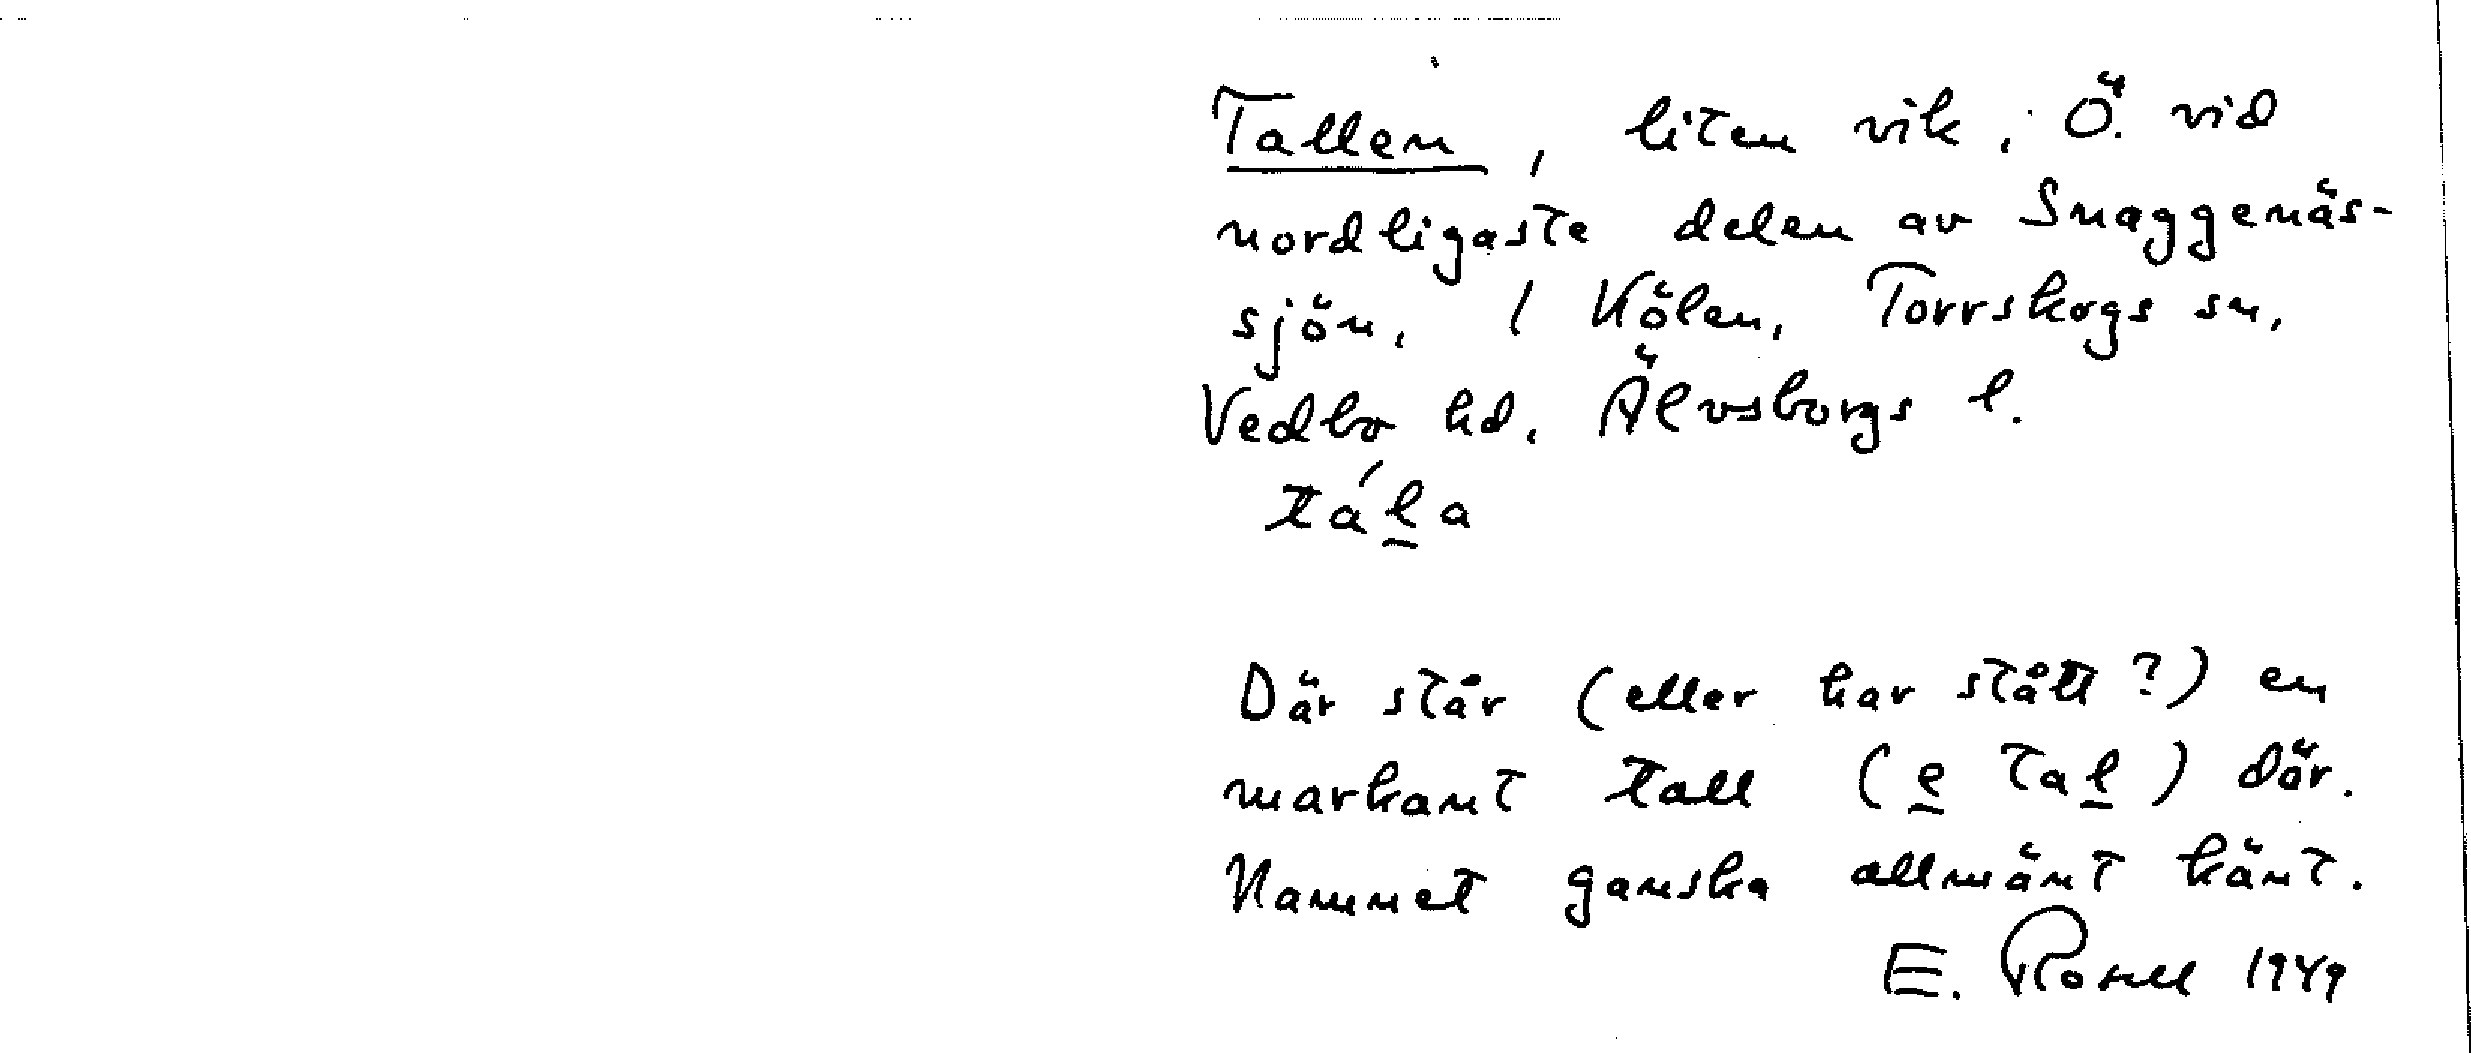 Tallen, liten vik, Ö. vid
nordligaste delen av Snaggenäs-
sjön, i Kölen, Torrskogs sn,
Vedbo hd, Älvsborgs l.
tála
Där står (eller har stått?) en
markant tall (e tal) där.
Namnet ganska allmänt känt.
E. Rosell 1949